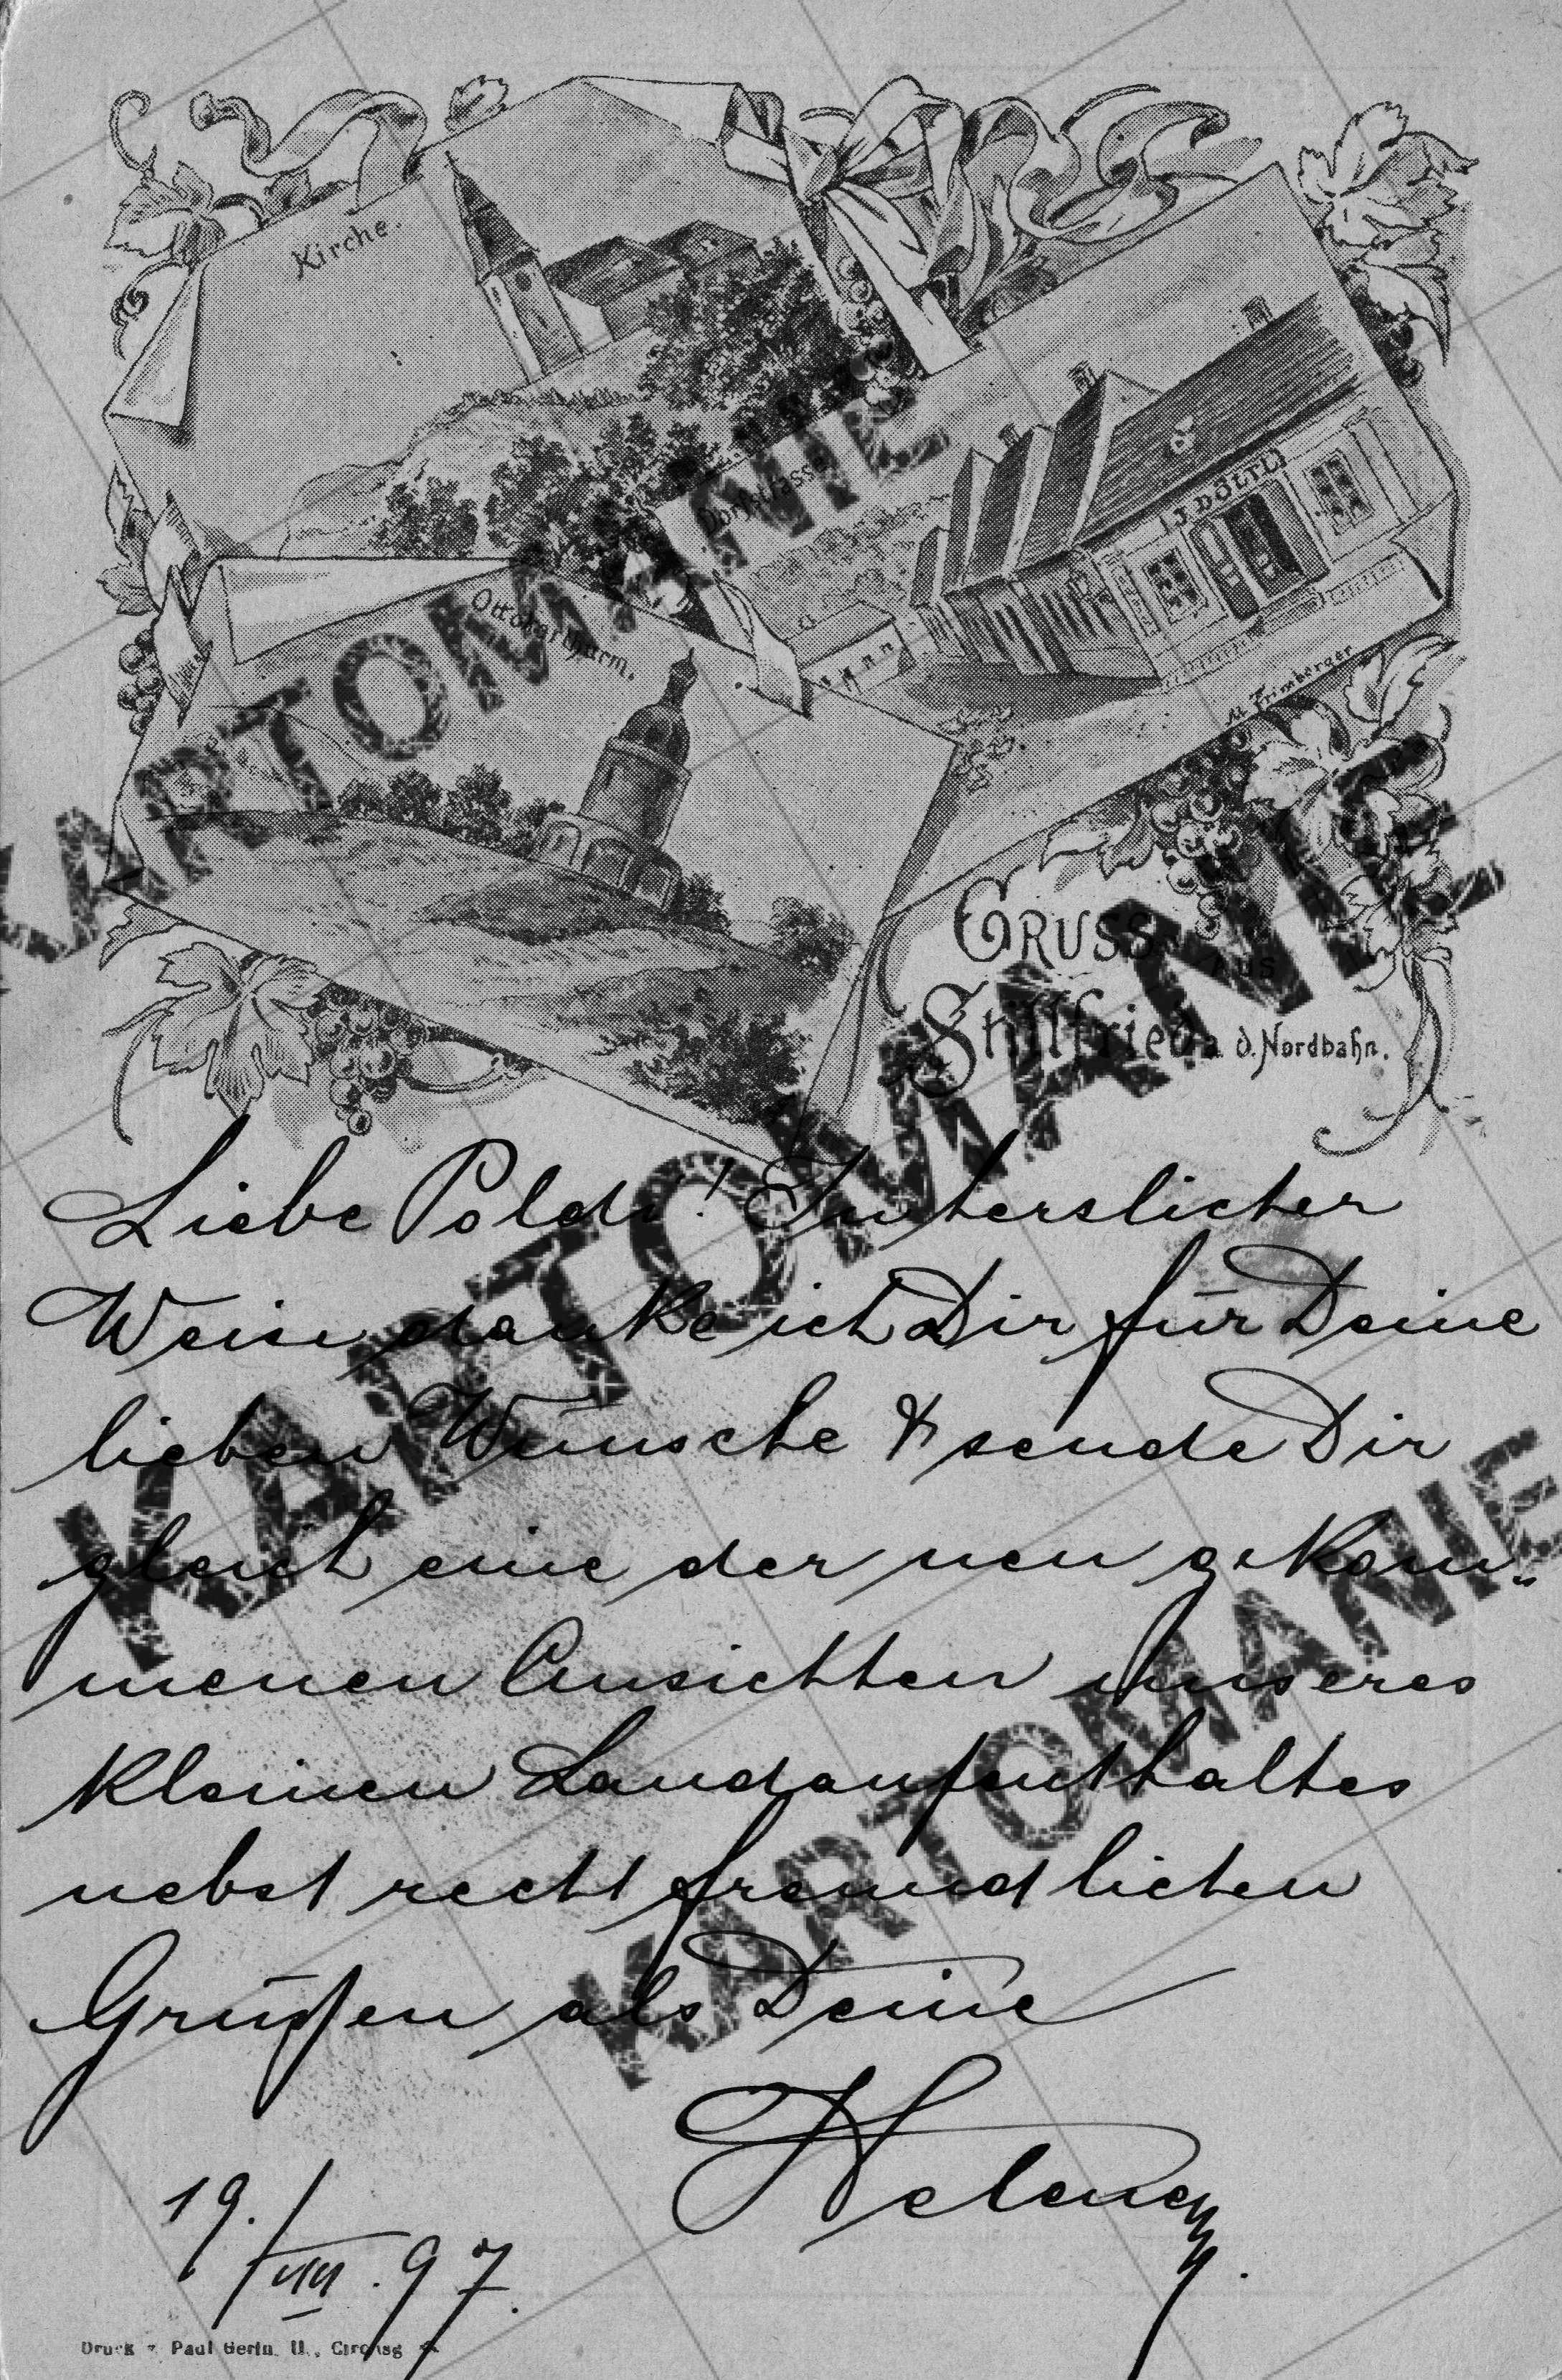 Kirche.
Dorfstrasse
J. DÖLTL
Ottokarthurm.
Al. Trimberger
GRUSS AUS
Stillfried a. d. Nordbahn.
Liebe Poldi! In herslicher
Weise danke ich Dir für Deine
lieben Wünsche & sende Dir
gleich eine der neu gekom„
menen Ansichten unseres
kleinen Landaufenthaltes
nebst recht freundlichen
Grüßen als Deine
Helene
19./VIII. 97.
Druck v. Paul Gerin, II., Circusg
KARTOMANIE
KARTOMANIE
KARTOMANIE